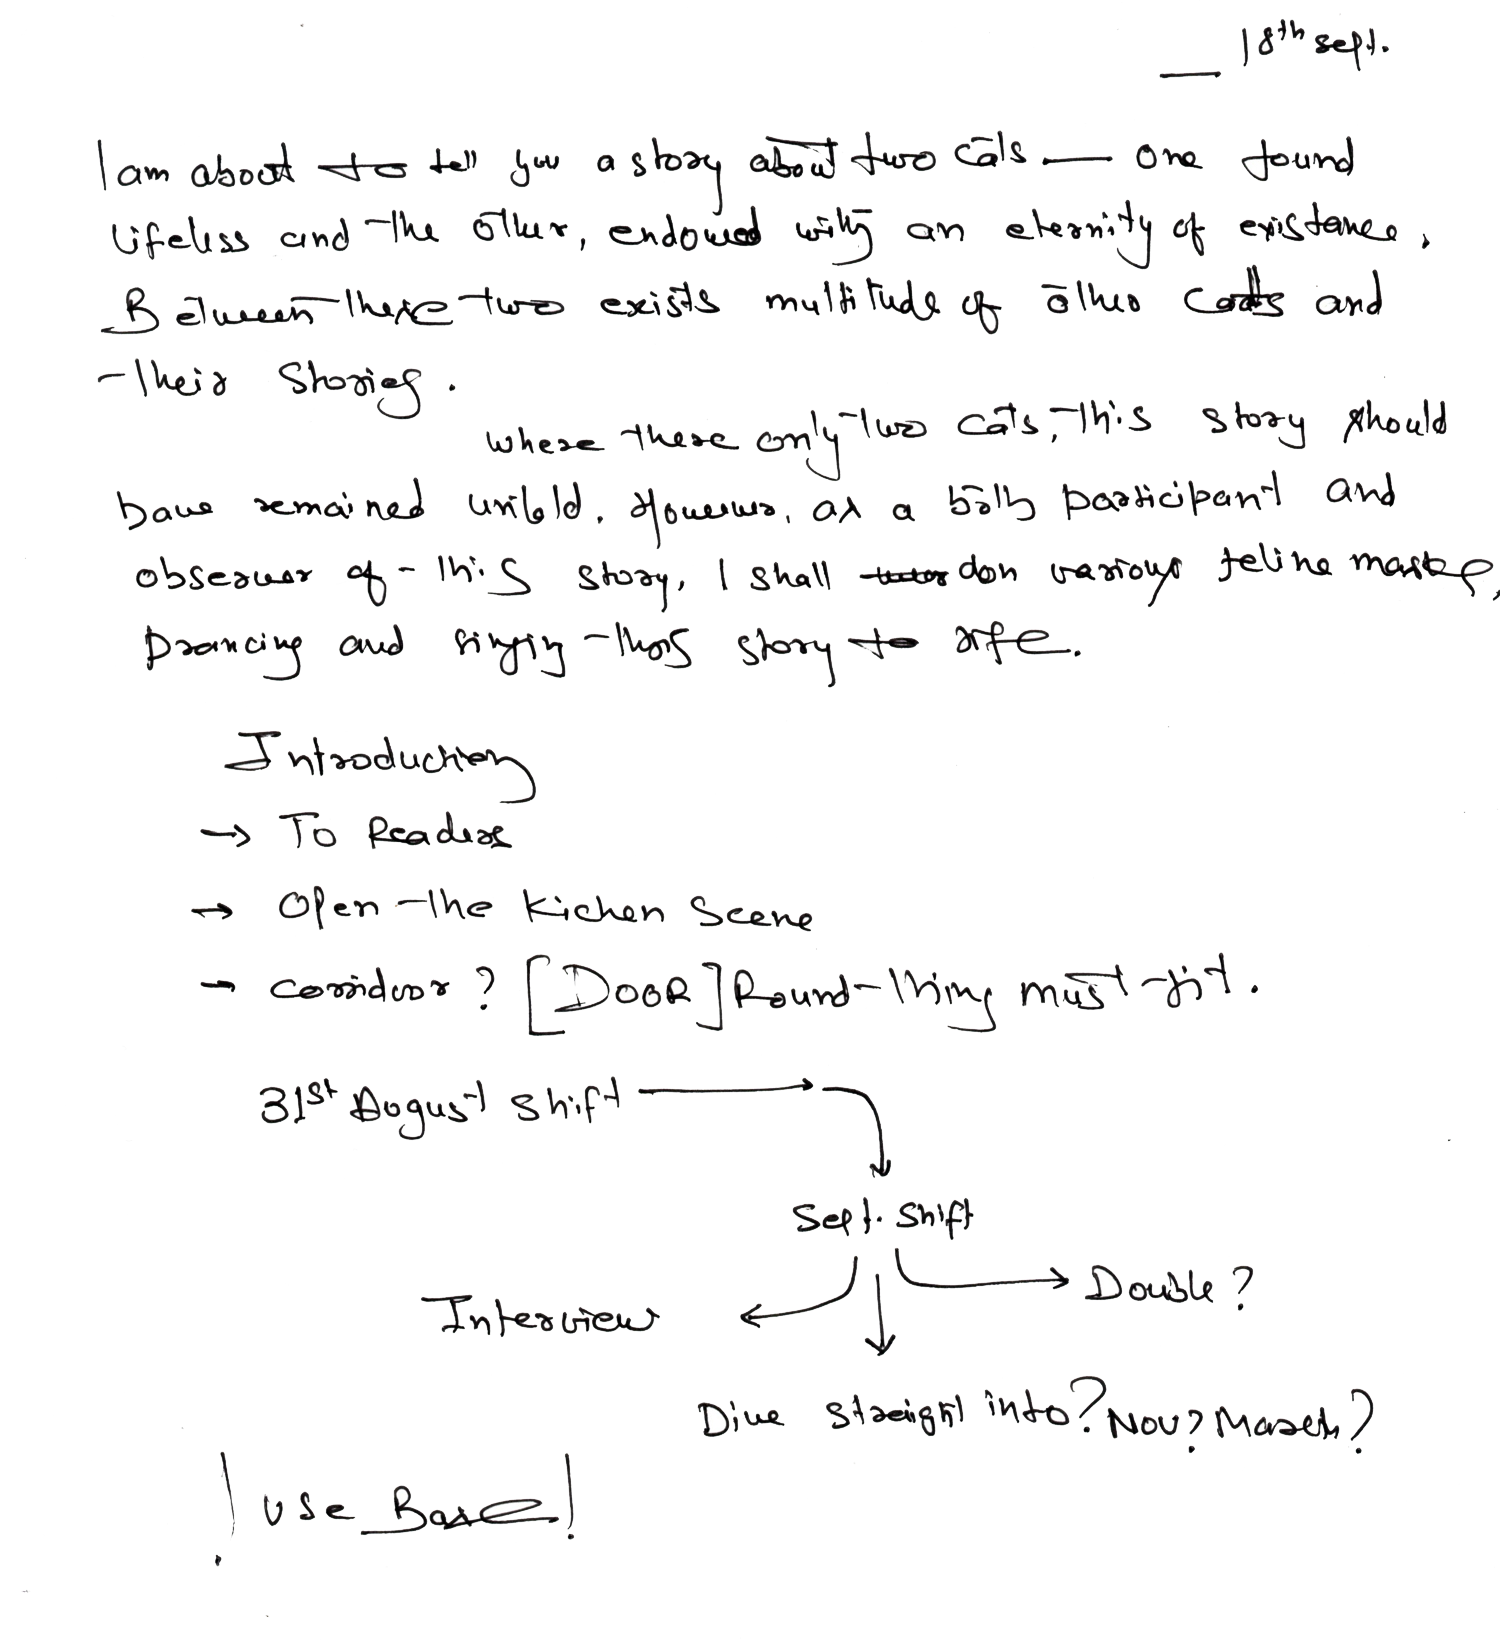 — 18th sept.
I am about to tell you a story about two cats — one found
lifeless and the other, endowed with an eternity of existance.
Between these two exists multitude of other cats and
their stories.
where there only two cats, this story should
have remained untold. However, as a both participant and
observer of this story, I shall don various feline masks,
prancing and singing this story to life.
Introduction
→ To Readers
→ Open the Kichen Scene
→ corridoor? [DOOR] Round thing must fit.
31st August shift
Sept. Shift
Interview Double?
Dive straight into? Nov? March?
! Use Base!